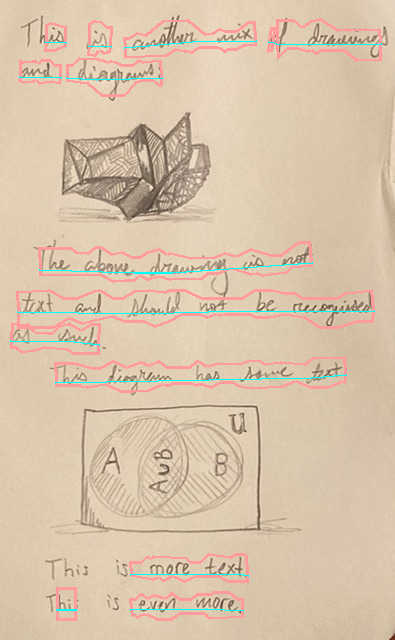 This is another mix of drawings
and diagrams.
The above drawing is not
text and should not be recognised
as such.
This diagram has some text
U
A
AUB
B
This is more text
This is even more.